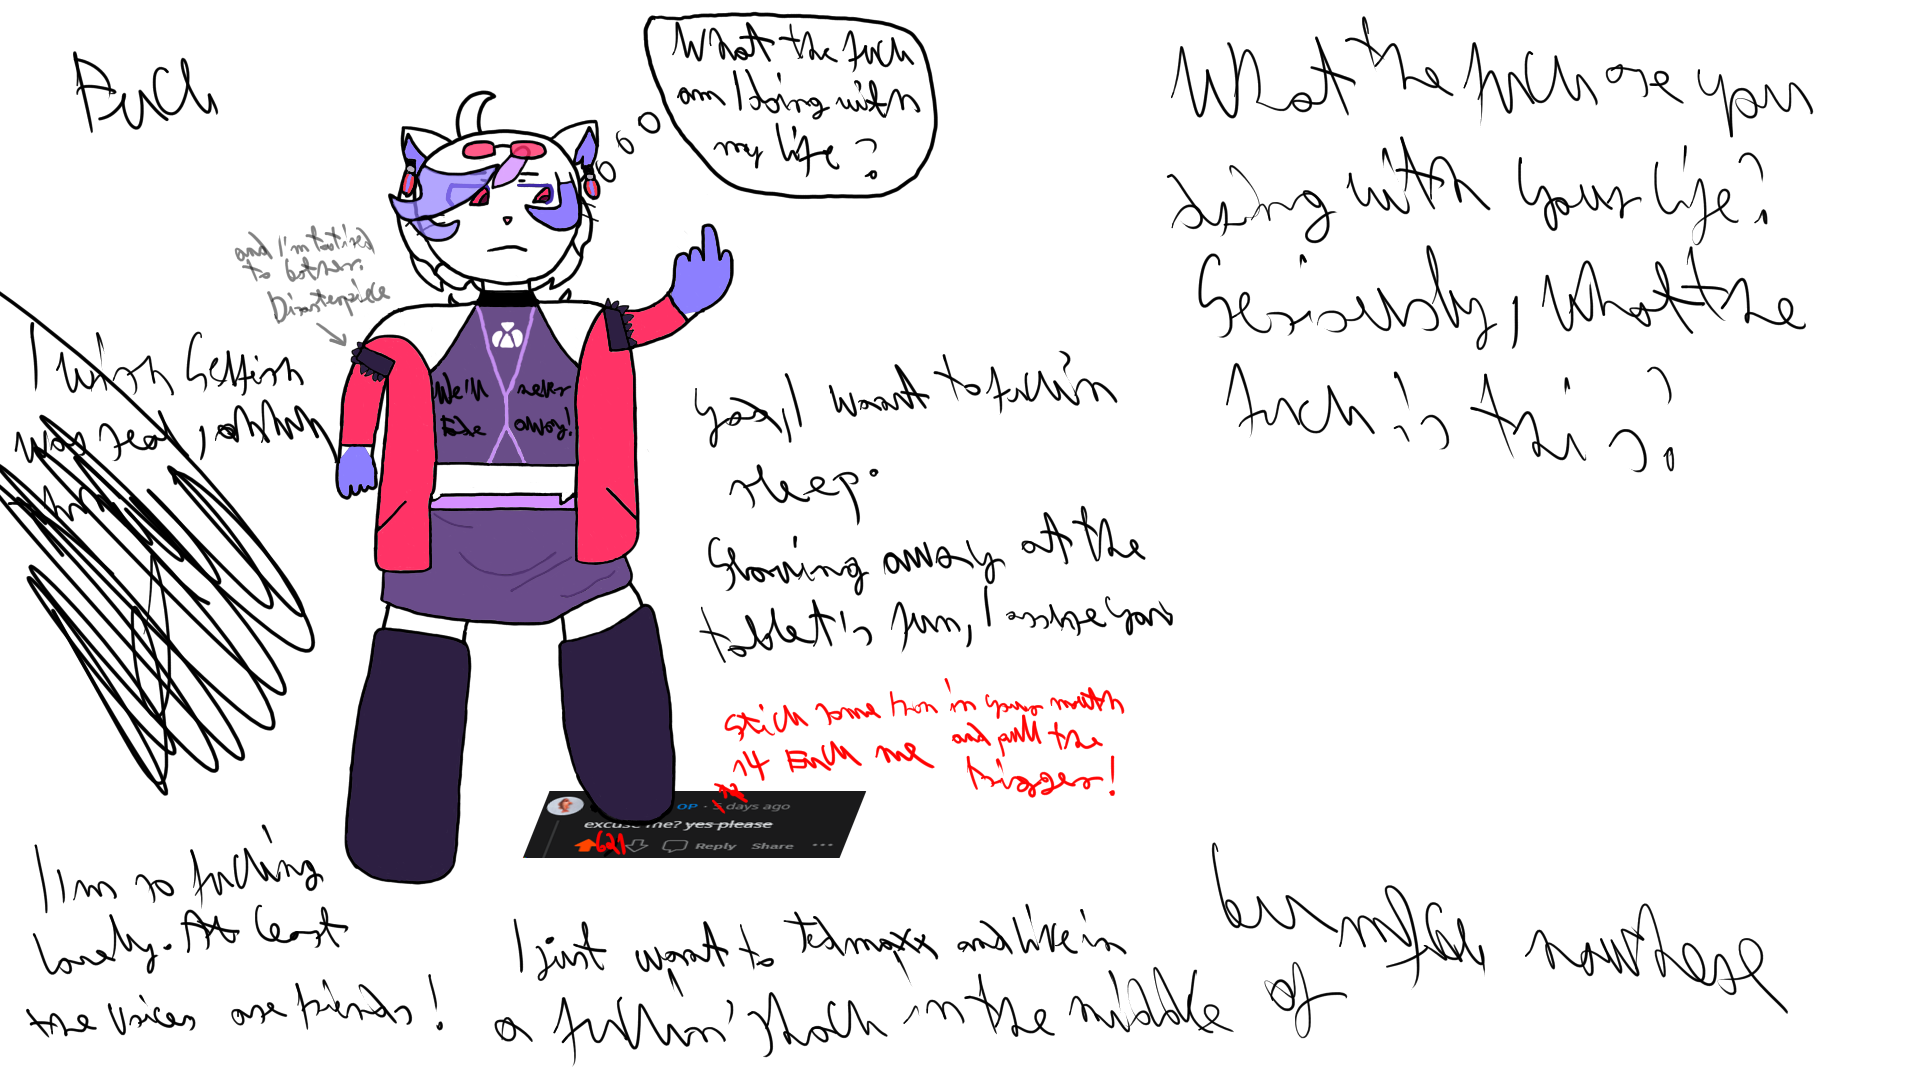 Fuck
What the fuck
am I doing with
my life?
What the fuck are you
doing with your life?
Seriously, what the
fuck is this?
and I'm too tired
to bother.
Disasterpiece
I wish Selfish
was real, ahhhh
We'll never
fade away!
God, I want to fuckin
sleep.
Staring away at the
tablet's fun, I assure you
Stick some iron in your mouth
and pull the
trigger!
14 Fuck me
OP · days ago
excuse me? yes please
621
Reply Share
I'm so fucking
lonely. At least
the voices are friends!
I just want to tedmaxx and live in
a fuckin' shack in the middle of
bumfuck nowhere